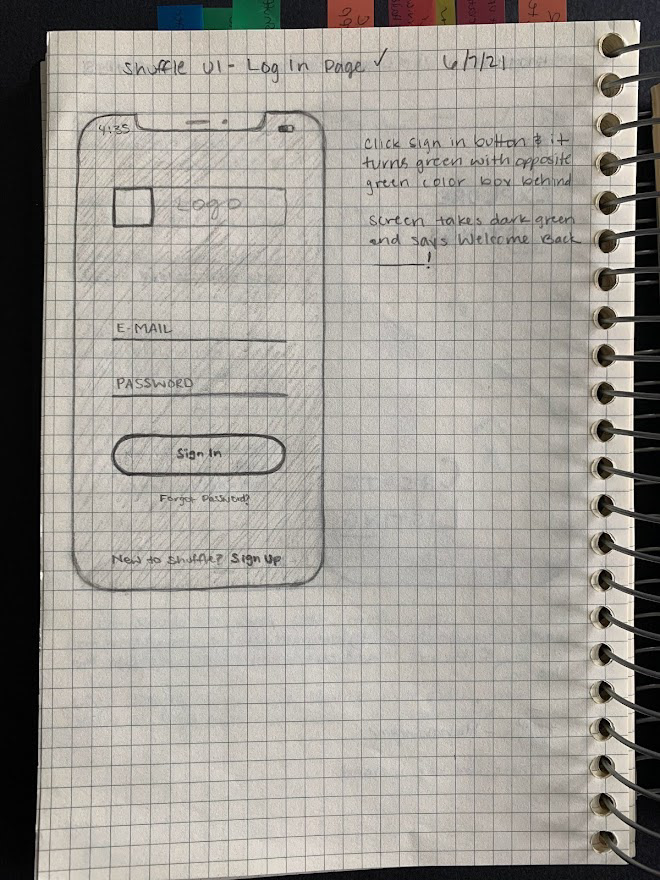 Shuffle UI - Log In Page ✓ 6/7/21
4:35
Logo
E-MAIL
PASSWORD
Sign In
Forgot Password?
New to Shuffle? Sign Up
click sign in button & it
turns green with opposite
green color box behind
screen takes dark green
and says Welcome Back
______!